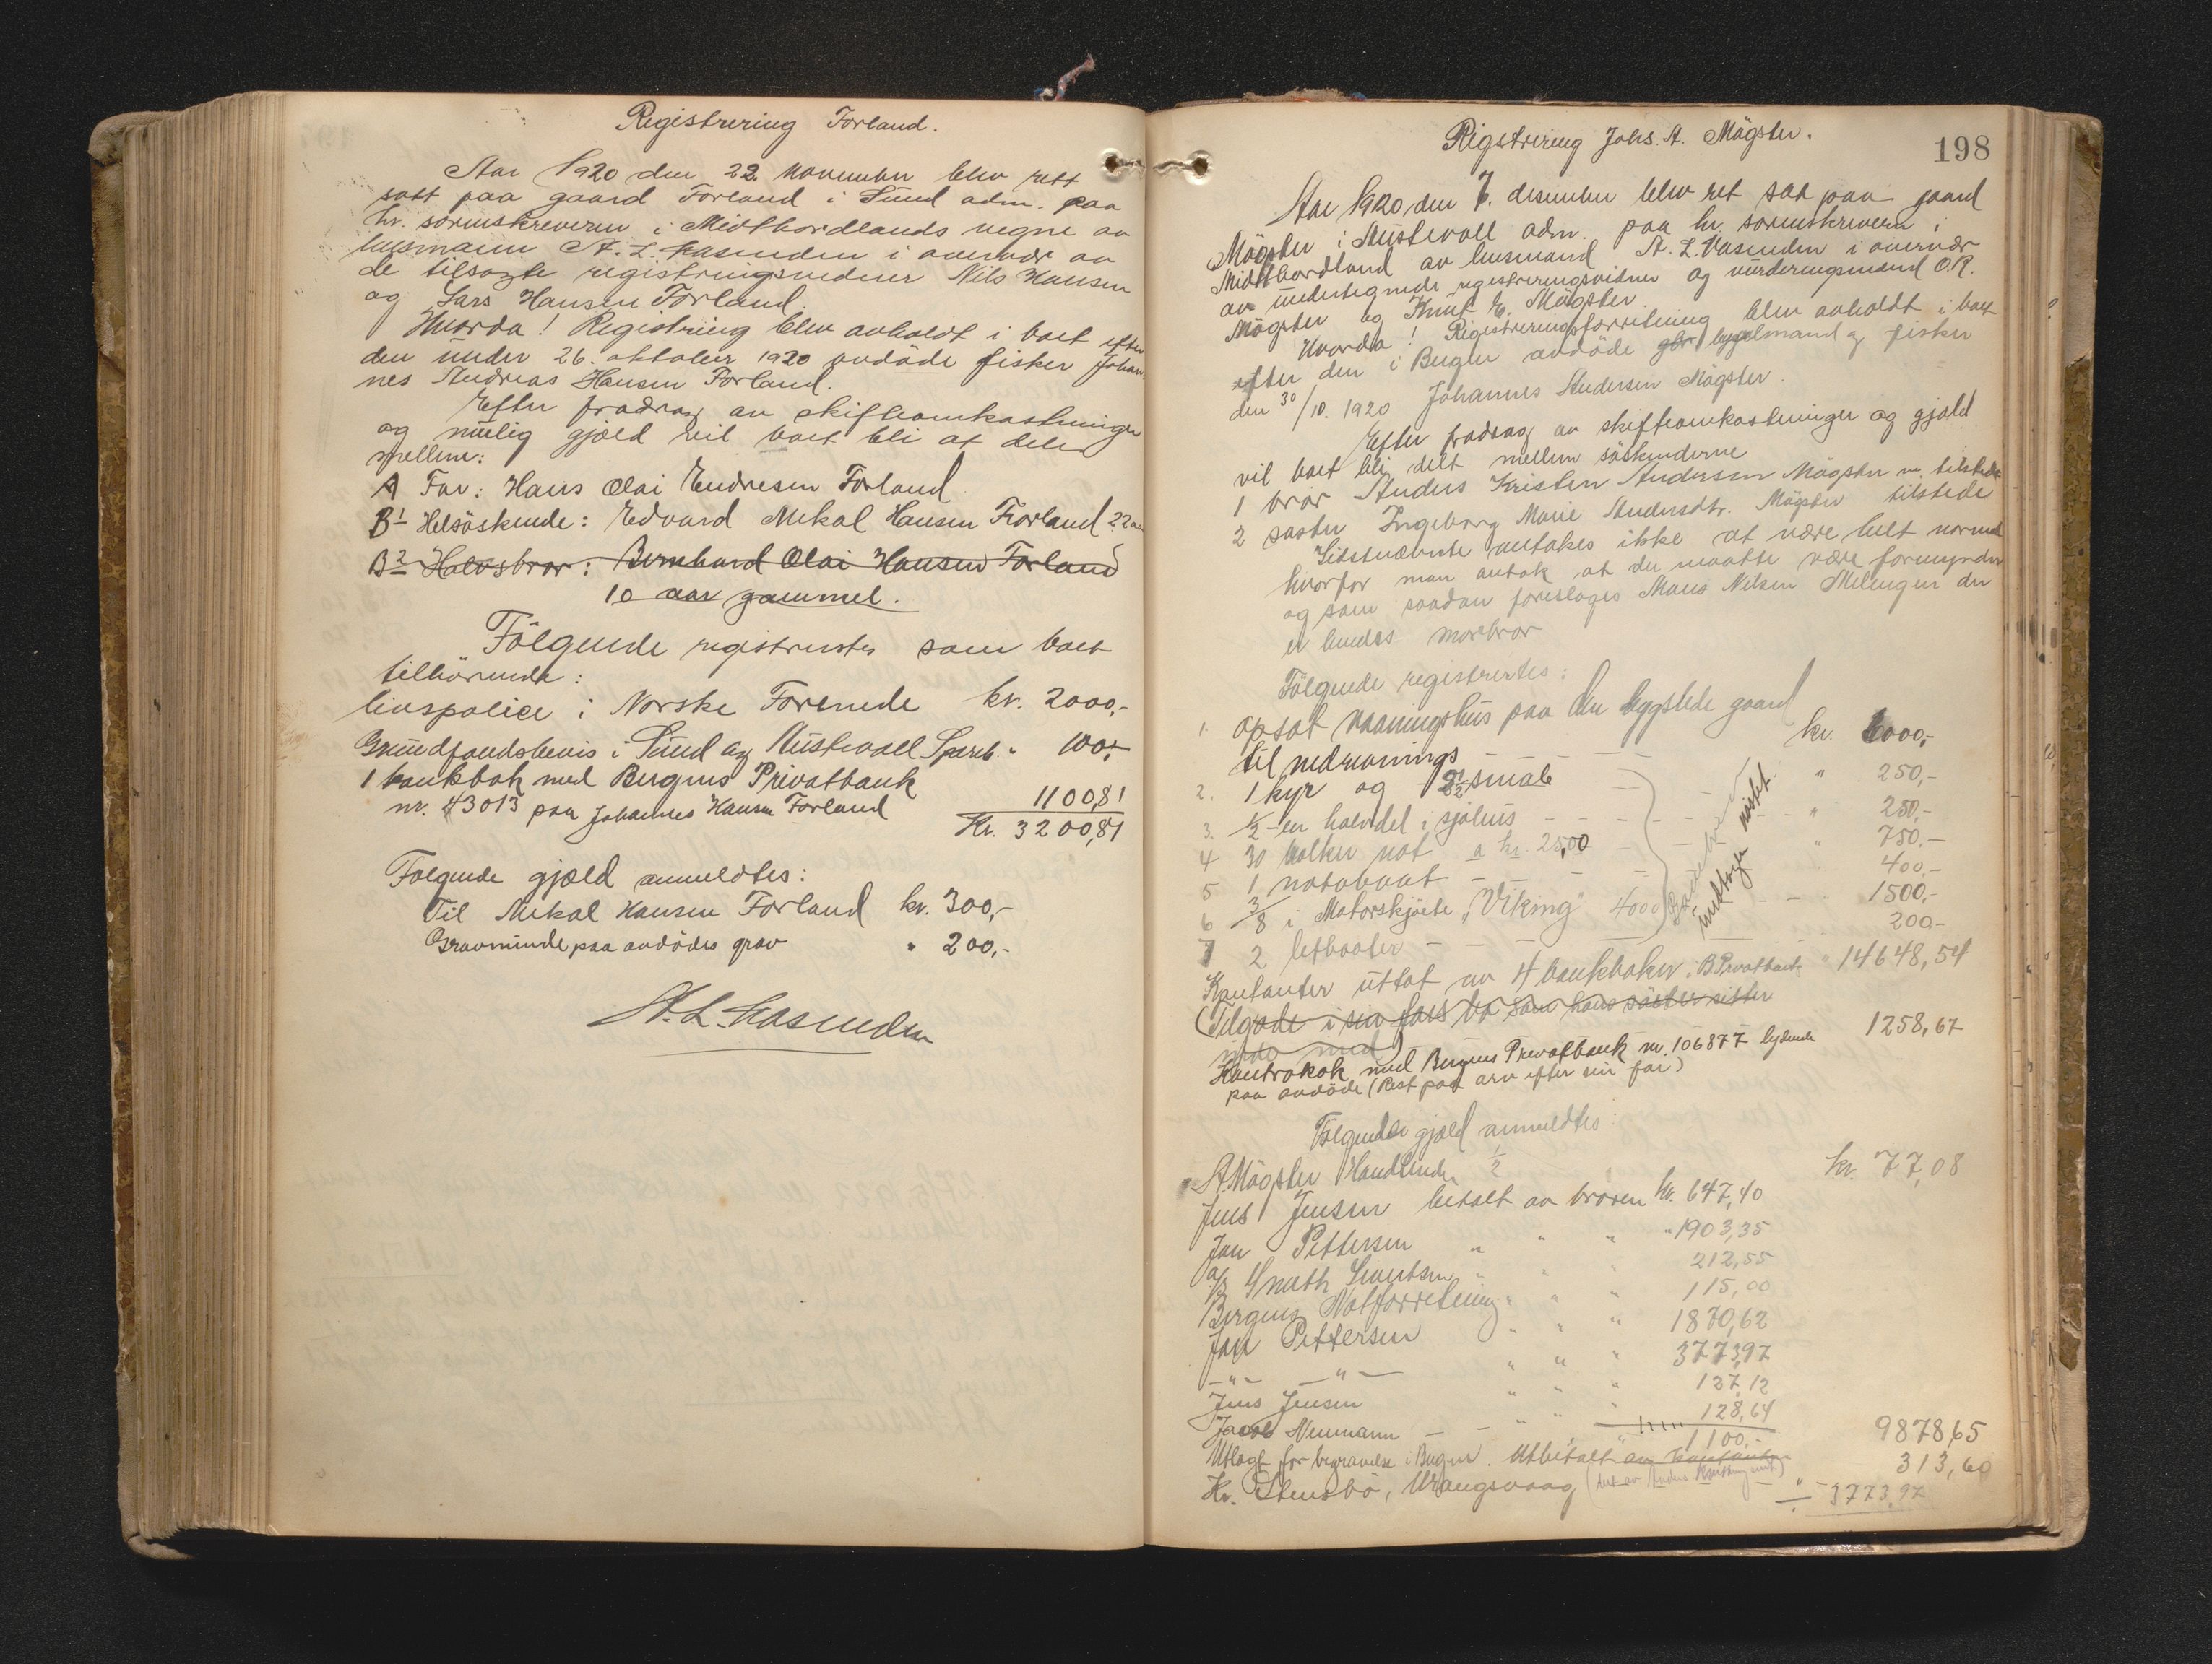 Registrering Forland.
Aar 1920 den 22. november blev rett
satt paa gaard Forland i Sund adm. paa
hr. sorenskriveren i Midthordlands vegne av
lensmann A. L. Vasenden i overvær av
de tilsagte registringsvidner Nils Hansen
og Lars Hansen Forland.
Hvorda! Registring blev avholdt i boet efter
den under 26. oktober 1920 avdöde fisker Johan-
nes Andreas Hansen Forland.
Efter fradrag av skifteomkostninger
og mulig gjæld vil boet bli at dele
mellem:
A Far: Hans Olai Endresen Forland
B1 Helsöskende: Edvard Mikal Hansen Forland 22 aar
B2 Halvsbror: Bernhard Olai Hansen Forland
10 aar gammel.
Fölgende registrertes som boet
tilhörende:
livspolice i Norske Forenede kr. 2000,-
Grundfondsbevis i Sund og Austevoll Spareb. " 100,-
1 bankbok med Bergens Privatbank
nr. 43013 paa Johannes Hansen Forland 1100,81
Kr. 3200,81
Fölgende gjæld anmeldtes:
Til Mikal Hansen Forland kr. 300,-
Gravminde paa avdödes grav " 200,-
A. L. Vasenden
198
Rigstrering Johs. A. Mögster.
Aar 1920 den 7. desember blev ret sat paa gaard
Mögster i Austevoll adm. paa hr. sorenskriveren i
Midthordland av lensmand A. L. Vasenden i overvær
av undertegnede registreringsvidner og vurderingsmænd O. R.
Mögster og Knut E. Mögster
Hvorda! Registreringsforretning blev avholdt i boet
efter den i Bergen avdöde gbr. bygselmand og fisker
den 30/10. 1920 Johannes Andersen Mögster.
Efter fradrag av skifteomkostninger og gjæld
vil boet bli delt mellem söskenderne
1 bror Anders Kristen Andersen Mögster m. tilstede
2 söster Ingeborg Marie Andersdtr. Mögster tilstede
Sidstnævnte antakes ikke at være helt normal
hvorfor man antok at der maatte være formynder
og som saadan foreslages Mons Nilsen Melingen der
er hendes morbror
Fölgende registrertes:
1. opsat vaaningshus paa den bygslede gaard
til nedrivnings - - - kr. 6000,-
2. 1 kyr og smale - " 250,-
3. 1/2-en halvdel i sjöhus - - - - " 250,-
4 30 bölker not a kr. 25,00 - - " 750,-
5 1 notabaat - - - - 400,-
6 3/8 i Motorskjöite "Viking" 4000 - - 1500,-
7 2 letbaater - - - - 200,-
undtagen nöstet
Kontanter uttat av 4 bankböker i B. Privatbank " 14648,54
(Tilgode i sin fars bo som hans söster sitter
med)
Kontrabok med Bergens Privatbank nr. 106877 lydende 1258,67
paa avdöde (Rest paa arv efter sin far)
Fölgende gjæld anmeldtes:
A. Mögster Handlende 1/2 kr. 77,08
Jens Jensen betalt av broren kr. 647,40
Jan Pettersen " " " " 1903,35
212,55
Bergens Notforretning " " " 115,00
Jan Pettersen " " " 1870,62
-"- -"- " " " 3773,97
Jens Jensen " " " 127,12
Jacob Neumann - - " " 128,64
1100,- 9878,65
Utlagt for begravelse i Bergen. Utbetalt av kontanter 313,60
Kr. Stensbö, Vrangsvaag " - 3773,97